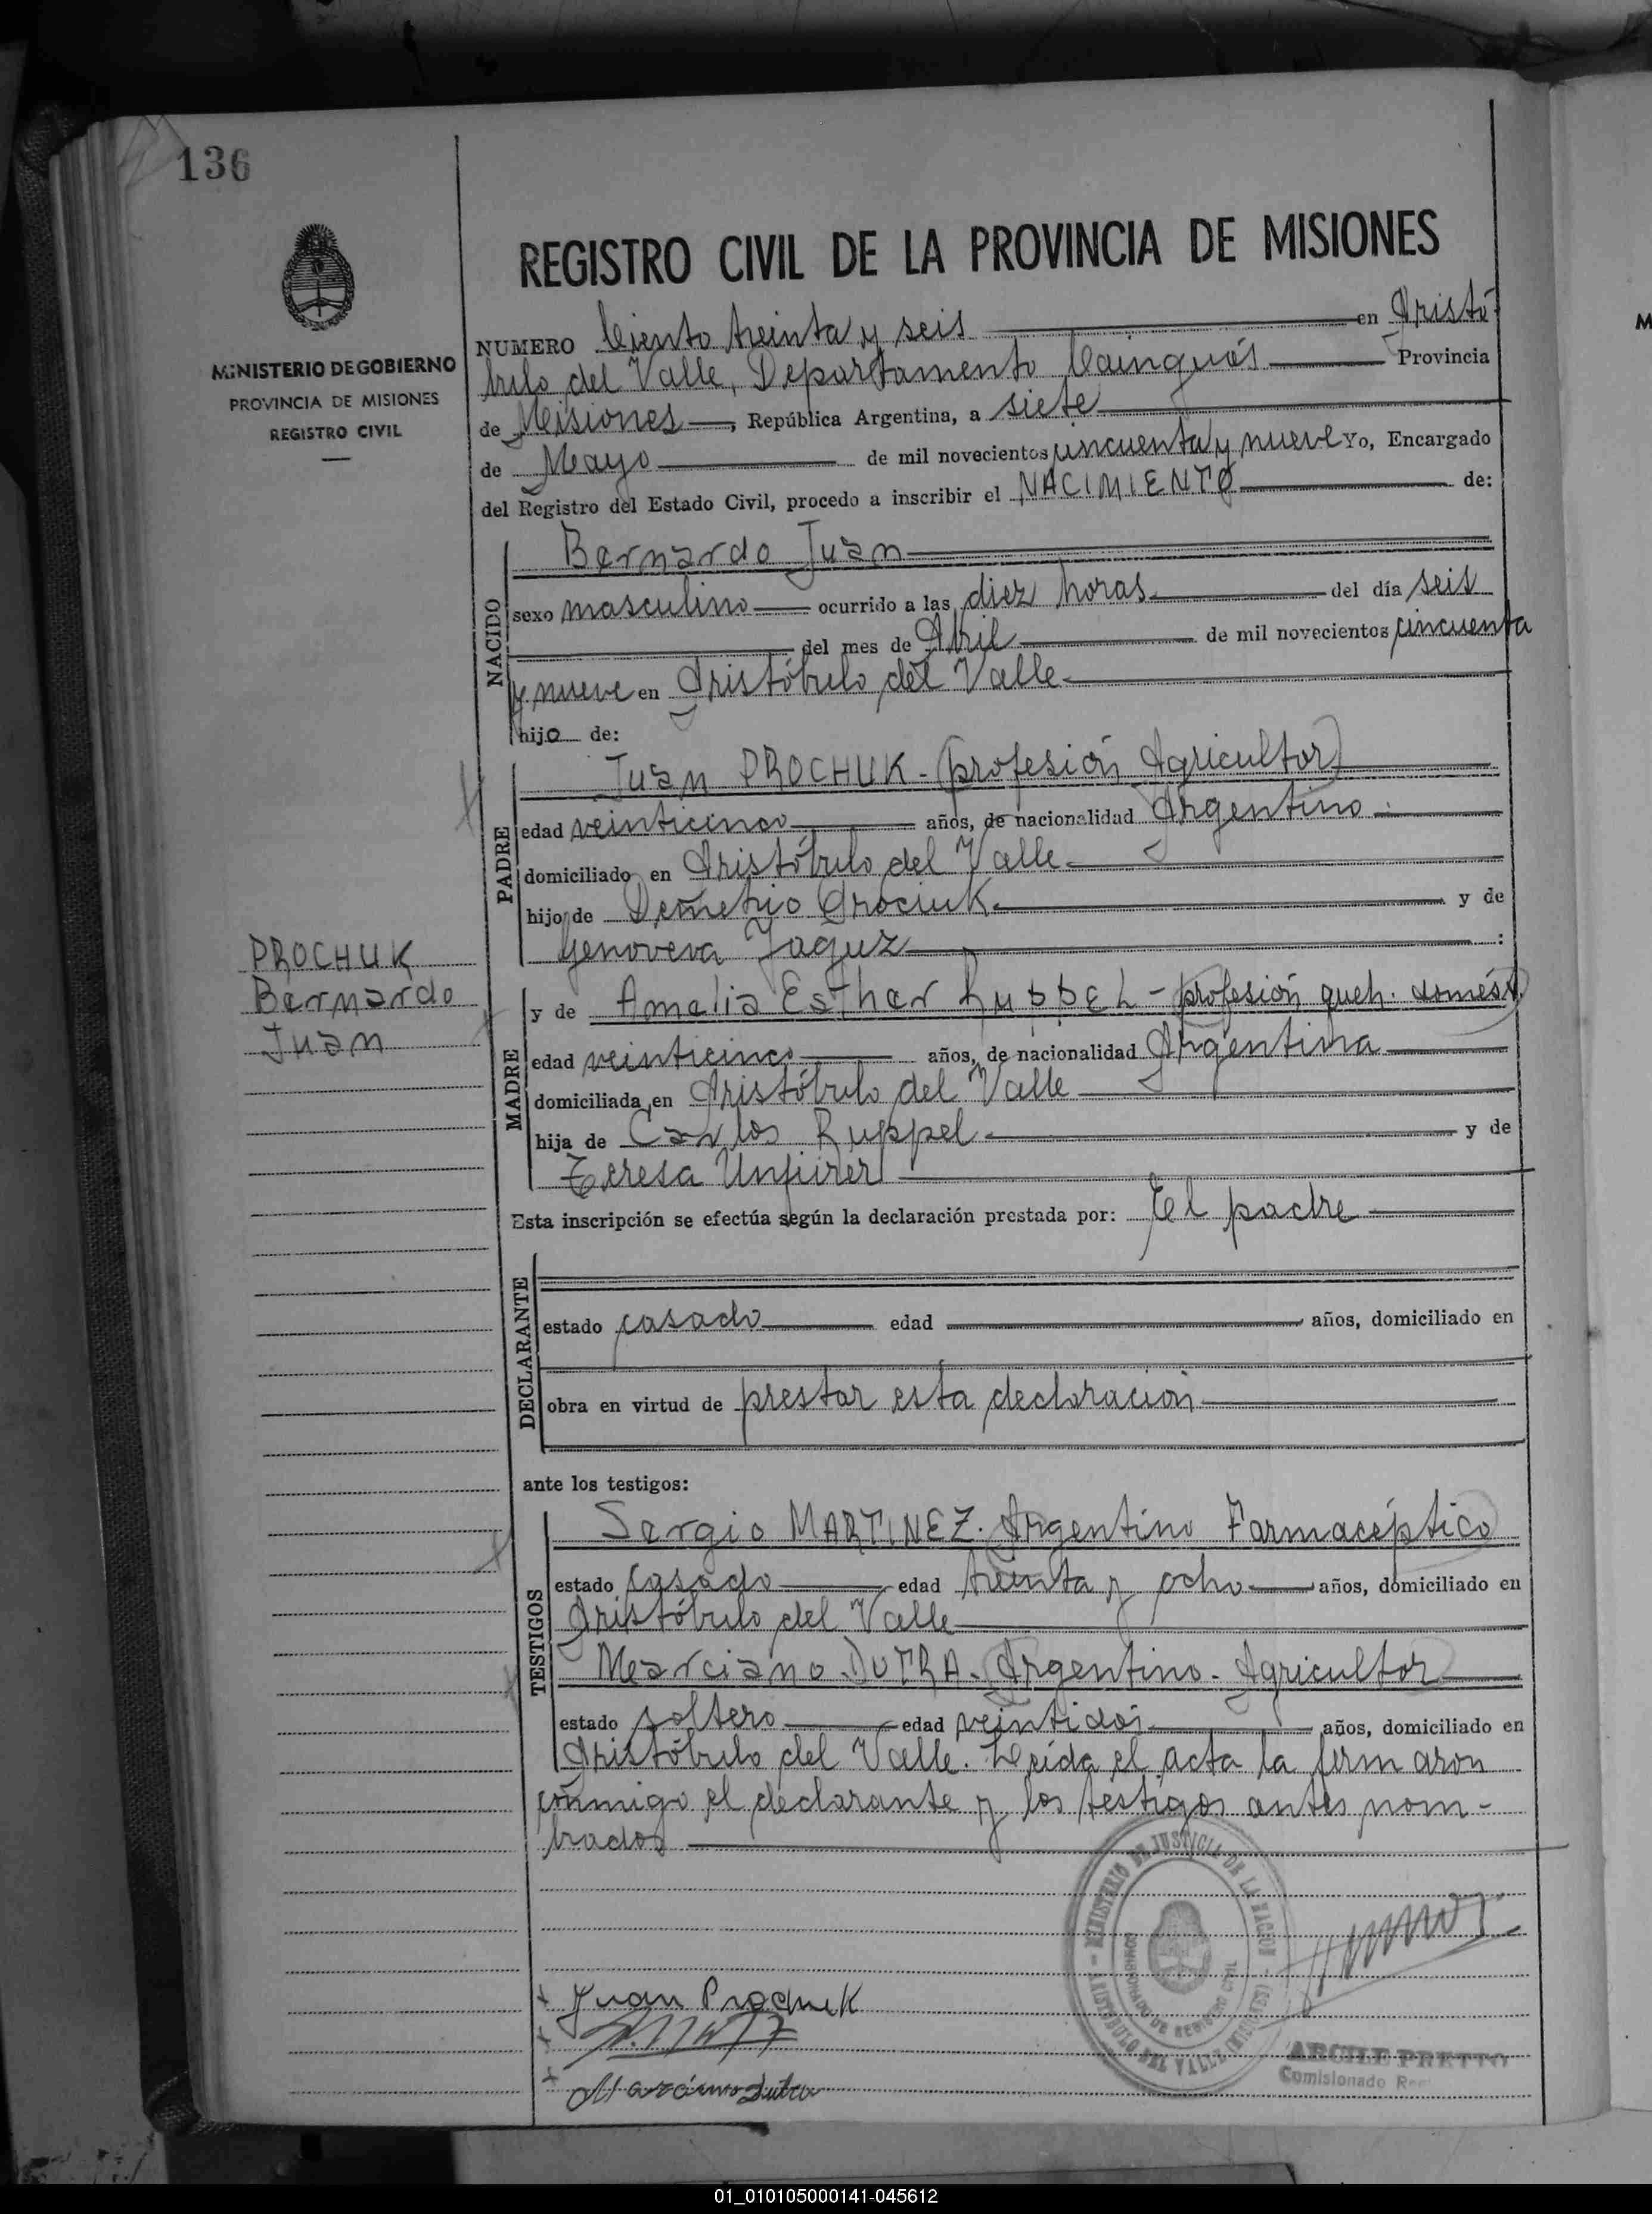 136
MINISTERIO DE GOBIERNO
PROVINCIA DE MISIONES
REGISTRO CIVIL
REGISTRO CIVIL DE LA PROVINCIA DE MISIONES
NUMERO Ciento treinta y seis en Aristó-
bulo del Valle, Departamento Cainguás Provincia
de Misiones, República Argentina, a siete
de Mayo de mil novecientos cincuenta y nueve Yo, Encargado
del Registro del Estado Civil, procedo a inscribir el NACIMIENTO de:
NACIDO
Bernardo Juan
sexo masculino ocurrido a las diez horas del día seis
del mes de Abril de mil novecientos cincuenta
y nueve en Aristóbulo del Valle
hijo de:
PADRE
Juan PROCHUK - (profesión Agricultor)
edad veinticinco años, de nacionalidad Argentino
domiciliado en Aristóbulo del Valle
hijo de Demetrio y de
Genoveva Jaguz :
PROCHUK
Bernardo
Juan
MADRE
y de Amalia Esther RUPPEL - profesión queh. domést.
edad veinticinco años, de nacionalidad Argentina
domiciliada en Aristóbulo del Valle
hija de Carlos Ruppel y de
Teresa
Esta inscripción se efectúa según la declaración prestada por: El padre
DECLARANTE
estado casado edad años, domiciliado en
obra en virtud de prestar esta declaración
ante los testigos:
TESTIGOS
Sergio MARTINEZ. Argentino Farmacéptico
estado casado edad treinta y ocho años, domiciliado en
Aristóbulo del Valle
Marciano DUTRA. Argentino - Agricultor
estado soltero edad veintidos años, domiciliado en
Aristóbulo del Valle. Leída el acta la firmaron
conmigo el declarante y los testigos antes nom-
brados
MINISTERIO DE JUSTICIA DE LA NACION - ARISTOBULO DEL VALLE (MISIONES) -
COMISIONADO DE REGISTRO CIVIL
Juan Prochuk
Marciano Dutra
ARGILE PRETTO
Comisionado
01_010105000141-045612